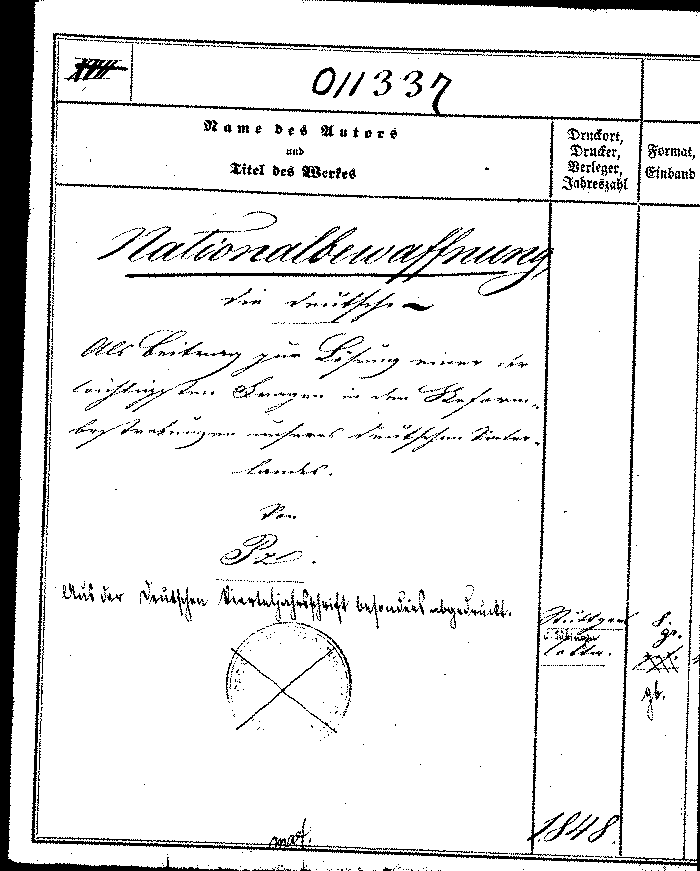 011337
Name des Autors
und
Titel des Werkes
Druckort,
Drucker,
Verleger,
Jahreszahl
Format,
Einband
Nationalbewaffnung
die deutsche
Als Beitrag zur Lösung einer der
wichtigsten Fragen in den Reform-
bestrebungen unseres deutschen Vater-
landes.
Von
Pz.
Aus der Deutschen Vierteljahrsschrift besonders abgedruckt.
Stuttgart
u. Tübingen
Cotta.
8.
gr.
gb.
1848.